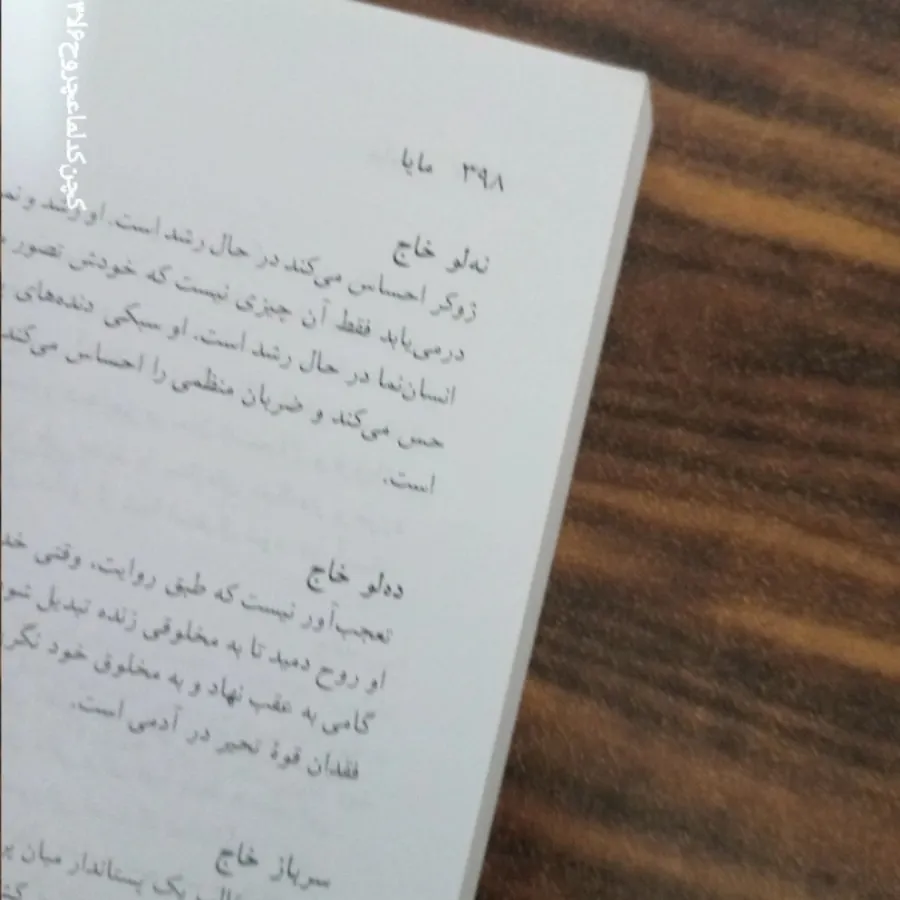 ۳۹۸ مایا
نه‌لو خاج
ژوکر احساس می‌کند در حال رشد است. او رشد و نمو
درمی‌یابد فقط آن چیزی نیست که خودش تصور
انسان‌نما در حال رشد است. او سبکی دنده‌های
حس می‌کند و ضربان منظمی را احساس می‌کند
است.
ده‌لو خاج
تعجب‌آور نیست که طبق روایت، وقتی
او روح دمید تا به مخلوقی زنده تبدیل
گامی به عقب نهاد و به مخلوق خود
فقدان قوهٔ تحیر در آدمی است.
سرباز خاج
یک پستاندار میان